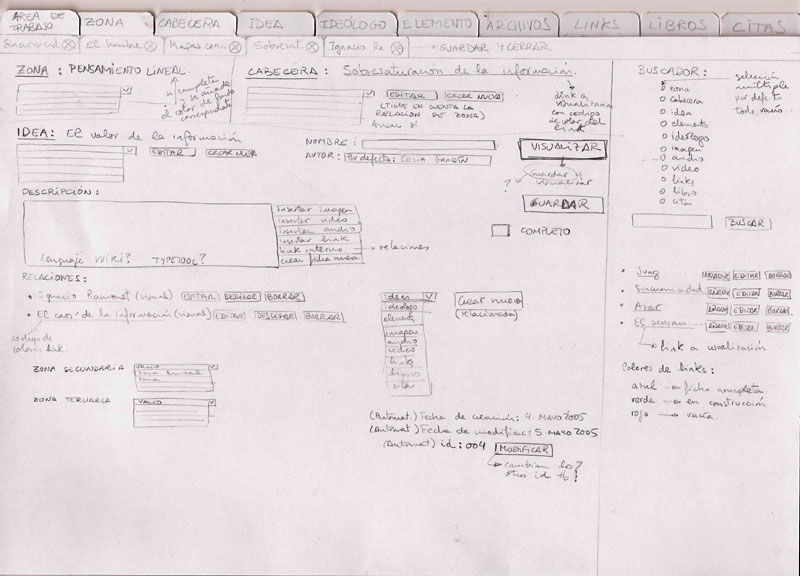 AREA DE TRABAJO
ZONA
CABECERA
IDEA
IDEÓLOGO
ELEMENTO
ARCHIVOS
LINKS
LIBROS
CITAS
Sincronicid. El hombre Mapas con. Sobresat. Ignacio Ra
• GUARDAR Y CERRAR
ZONA : PENSAMIENTO LINEAL.
se completa y se añade el color de fondo correspondiente
CABECERA : Sobresaturación de la información.
EDITAR CREAR NUEVA
(TIENE EN CUENTA LA
RELACIÓN DE ZONA)
link a
visualizar
con código
de color del
link
IDEA : El valor de la información
EDITAR CREAR NUEVA
NOMBRE :
AUTOR : Por defecto: Celia Gradín
VISUALIZAR
Guardar y
visualizar
?
GUARDAR
COMPLETO
DESCRIPCIÓN :
lenguaje Wiki? TYPETOOL?
insertar imagen
insertar video
insertar audio
insertar link
link interno → relaciones
crear ficha nueva
RELACIONES :
• Ignacio Ramonet (visual) EDITAR DESLIGAR BORRAR
• El caos de la información (visual) EDITAR DESLIGAR BORRAR
código de
colores link.
ideas
ideólogo
elemento
imagen
audio
video
links
libros
citas
Crear nueva
(relacionada)
ZONA SECUNDARIA
VACIO
ZONA TERCIARIA
VACIO
(Automat.) Fecha de creación: 4. MAYO 2005
(Automat) Fecha de modificac: 5. MAYO 2005
(Automat) id : 004 MODIFICAR
→ cambian los
otros id tb?
BUSCADOR :
zona
cabecera
idea
elemento
ideólogo
imagen
audio
video
links
libros
citas
selección
múltiple
por defecto
todo vacío.
BUSCAR
• Jung AÑADIR EDITAR BORRAR
• Sincronicidad AÑADIR EDITAR BORRAR
• Azar AÑADIR EDITAR BORRAR
• El pensam... AÑADIR EDITAR BORRAR
→ link a visualización
Colores de links :
azul → ficha completa
verde → en construcción
rojo → vacía.